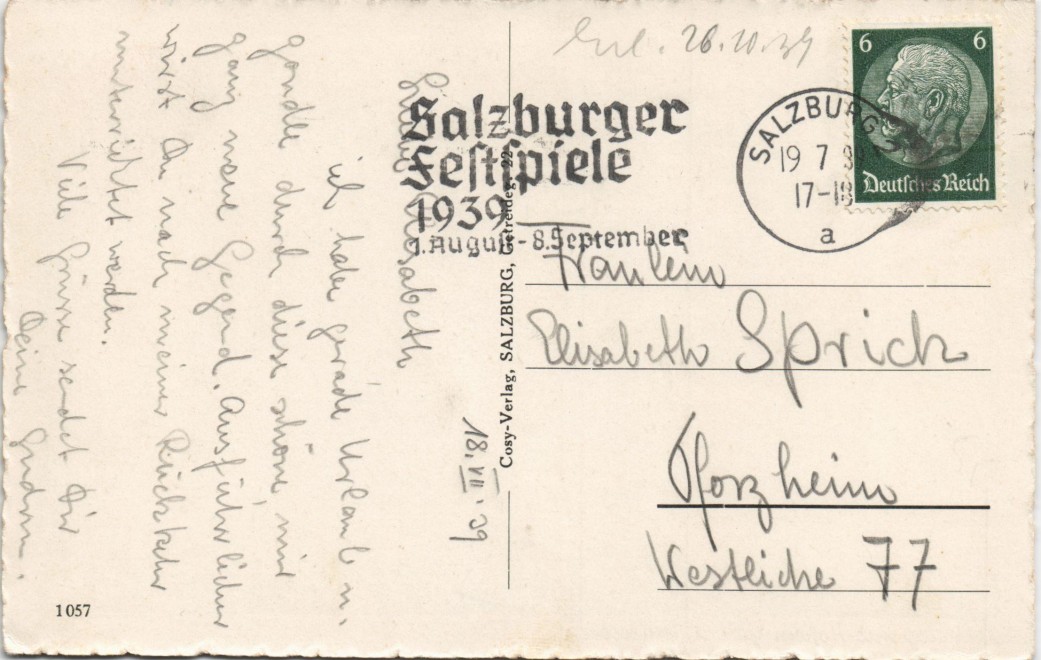 18.VII.39
Liebe Elisabeth
ich habe gerade Urlaub u.
gondle durch diese schöne mir
ganz neue Gegend. Ausführlicher
wirst Du nach meiner Rückkehr
unterrichtet werden.
Viele Grüsse sendet Dir
Deine Gudrun.
1057
Cosy-Verlag, SALZBURG, Getreideg. 22
26.10.39
Salzburger
Festspiele
1939
1. August - 8. September
SALZBURG
19 7 39
17-18
a
6 6
Deutsches Reich
Fräulein
Elisabeth Sprich
Pforzheim
Westliche 77